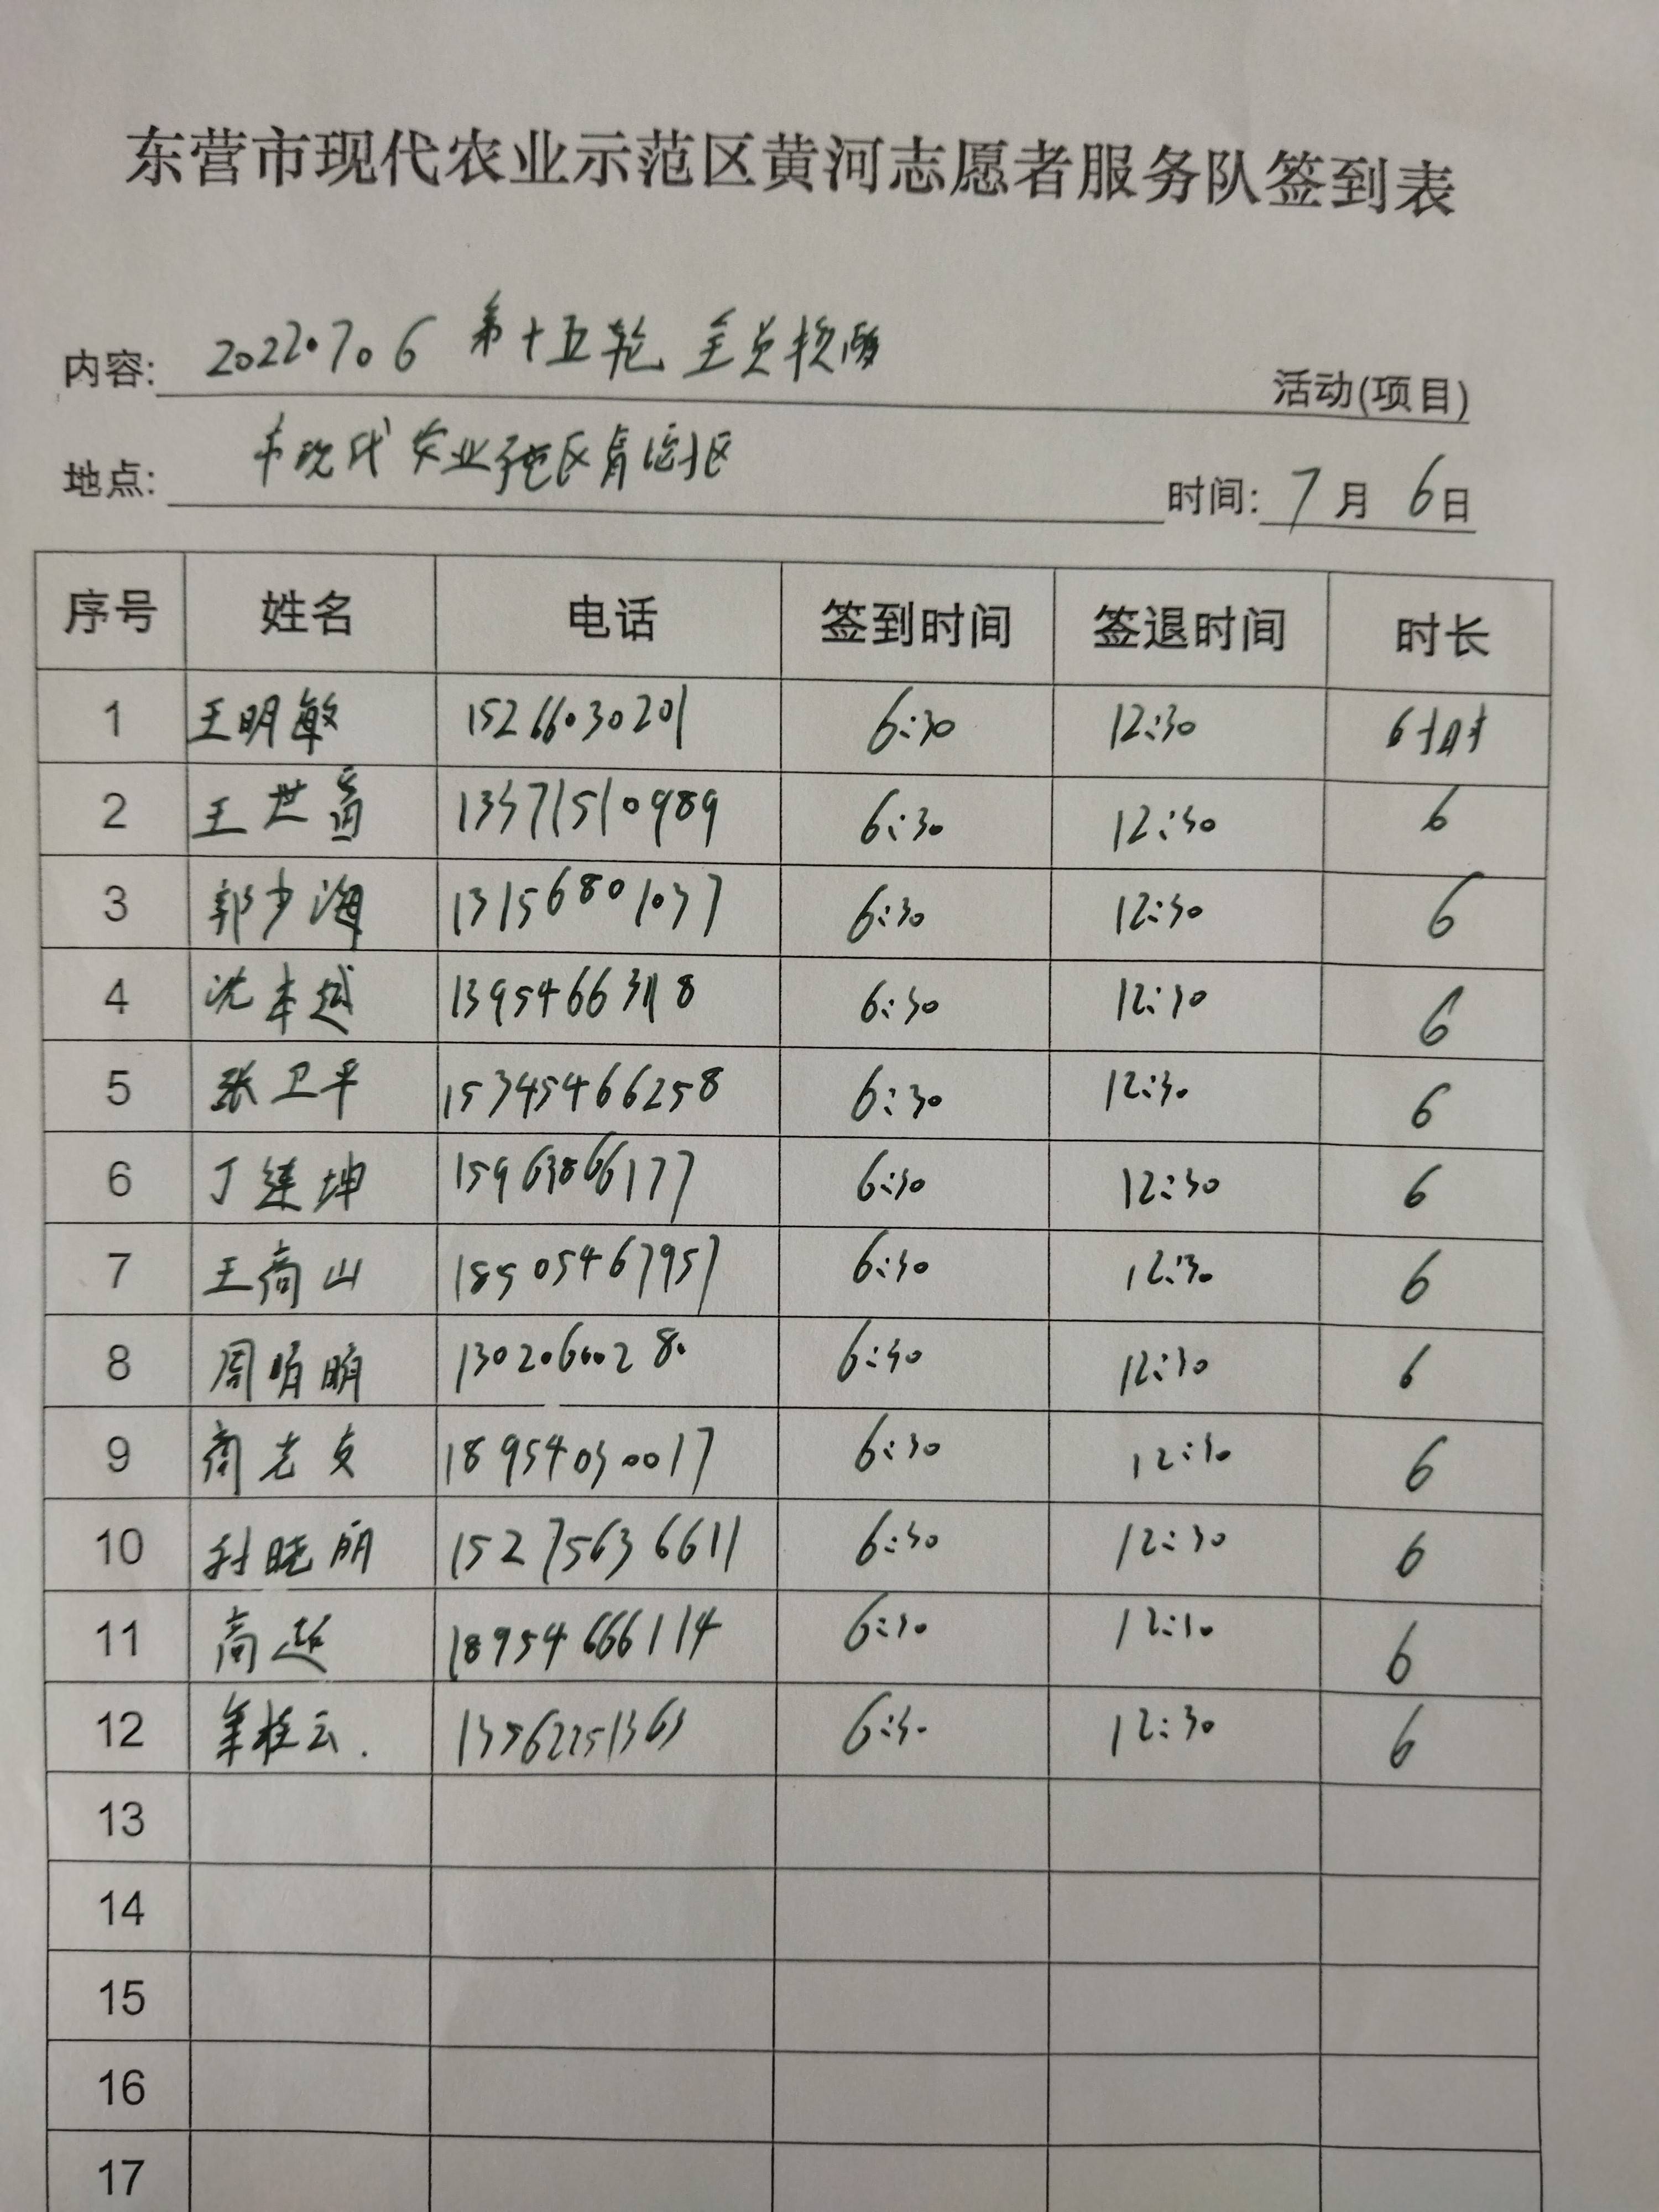 东营市现代农业示范区黄河志愿者服务队签到表
内容: 2022.7.6 第十五轮 全员核酸 活动(项目)
地点: 市现代农业示范区育德社区 时间: 7月6日
序号 姓名 电话 签到时间 签退时间 时长
1 王明敏 15266030201 6:30 12:30 6小时
2 王世 13371510989 6:30 12:30 6
3 郭少海 13156801037 6:30 12:30 6
4 沈本越 13954663118 6:30 12:30 6
5 张卫平 15345466258 6:30 12:30 6
6 丁建坤 15963866177 6:30 12:30 6
7 王商山 18505467957 6:30 12:30 6
8 周明鹏 13020600280 6:30 12:30 6
9 商志友 18954030017 6:30 12:30 6
10 孙晓丽 15275636611 6:30 12:30 6
11 高超 18954666114 6:30 12:30 6
12 桂云. 13562251363 6:30 12:30 6
13
14
15
16
17